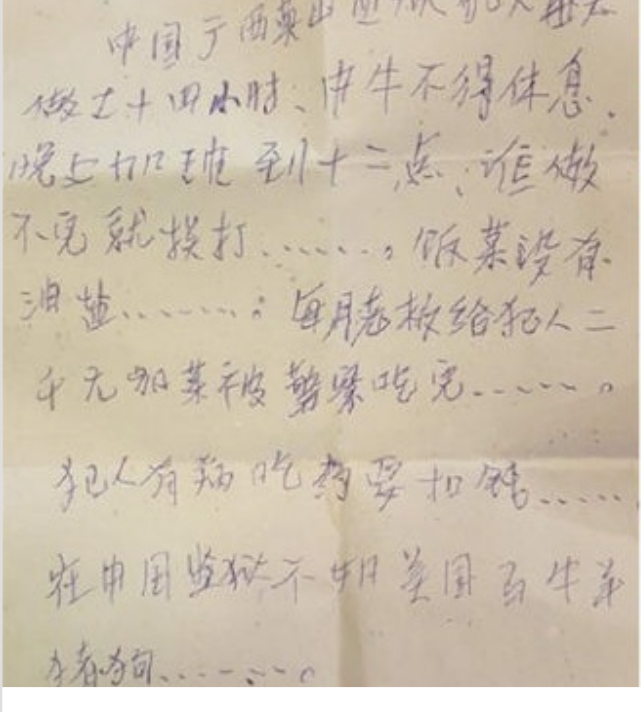 中国广西英山监狱犯人每天
做工十四小时、中午不得休息、
晚上加班到十二点、谁做
不完就挨打.......。饭菜没有
油盐........; 每月老板给犯人二
千元加菜被警察吃完.......。
犯人有病吃药要扣钱......
在中国监狱不如美国的牛羊
猪狗.......。